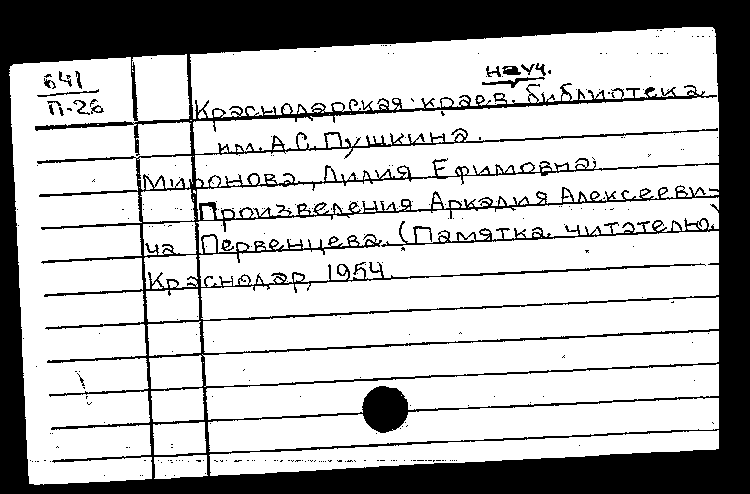 641
П-26
науч.
Краснодарская краев. библиотека
им. А.С. Пушкина.
Миронова, Лилия Ефимовна,
Произведения Аркадия Алексееви-
ча Первенцева. (Памятка читателю.)
Краснодар, 1954.